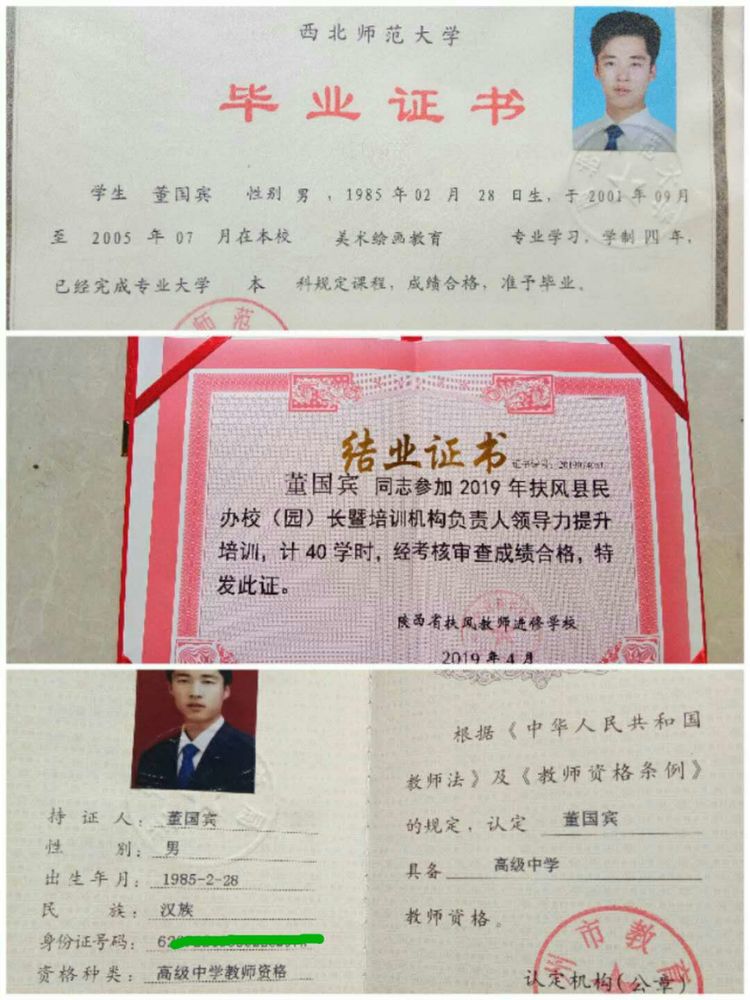 西北师范大学
毕业证书
学生 董国宾 性别 男 ，1985年02月28日生，于2001年09月
至 2005 年 07 月在本校 美术绘画教育 专业学习，学制四年，
已经完成专业大学 本 科规定课程，成绩合格，准予毕业。
师范
结业证书
证书编号：
董国宾 同志参加2019年扶风县民
办校（园）长暨培训机构负责人领导力提升
培训，计40学时，经考核审查成绩合格，特
发此证。
陕西省扶风教师进修学校
2019年4月
持 证 人：董国宾
性 别：男
出生年月：1985-2-28
民 族：汉族
身份证号码：62
资格种类：高级中学教师资格
根据《中华人民共和国
教师法》及《教师资格条例》
的规定，认定 董国宾
具备 高级中学
教师资格。
州市教育
认定机构(公章)